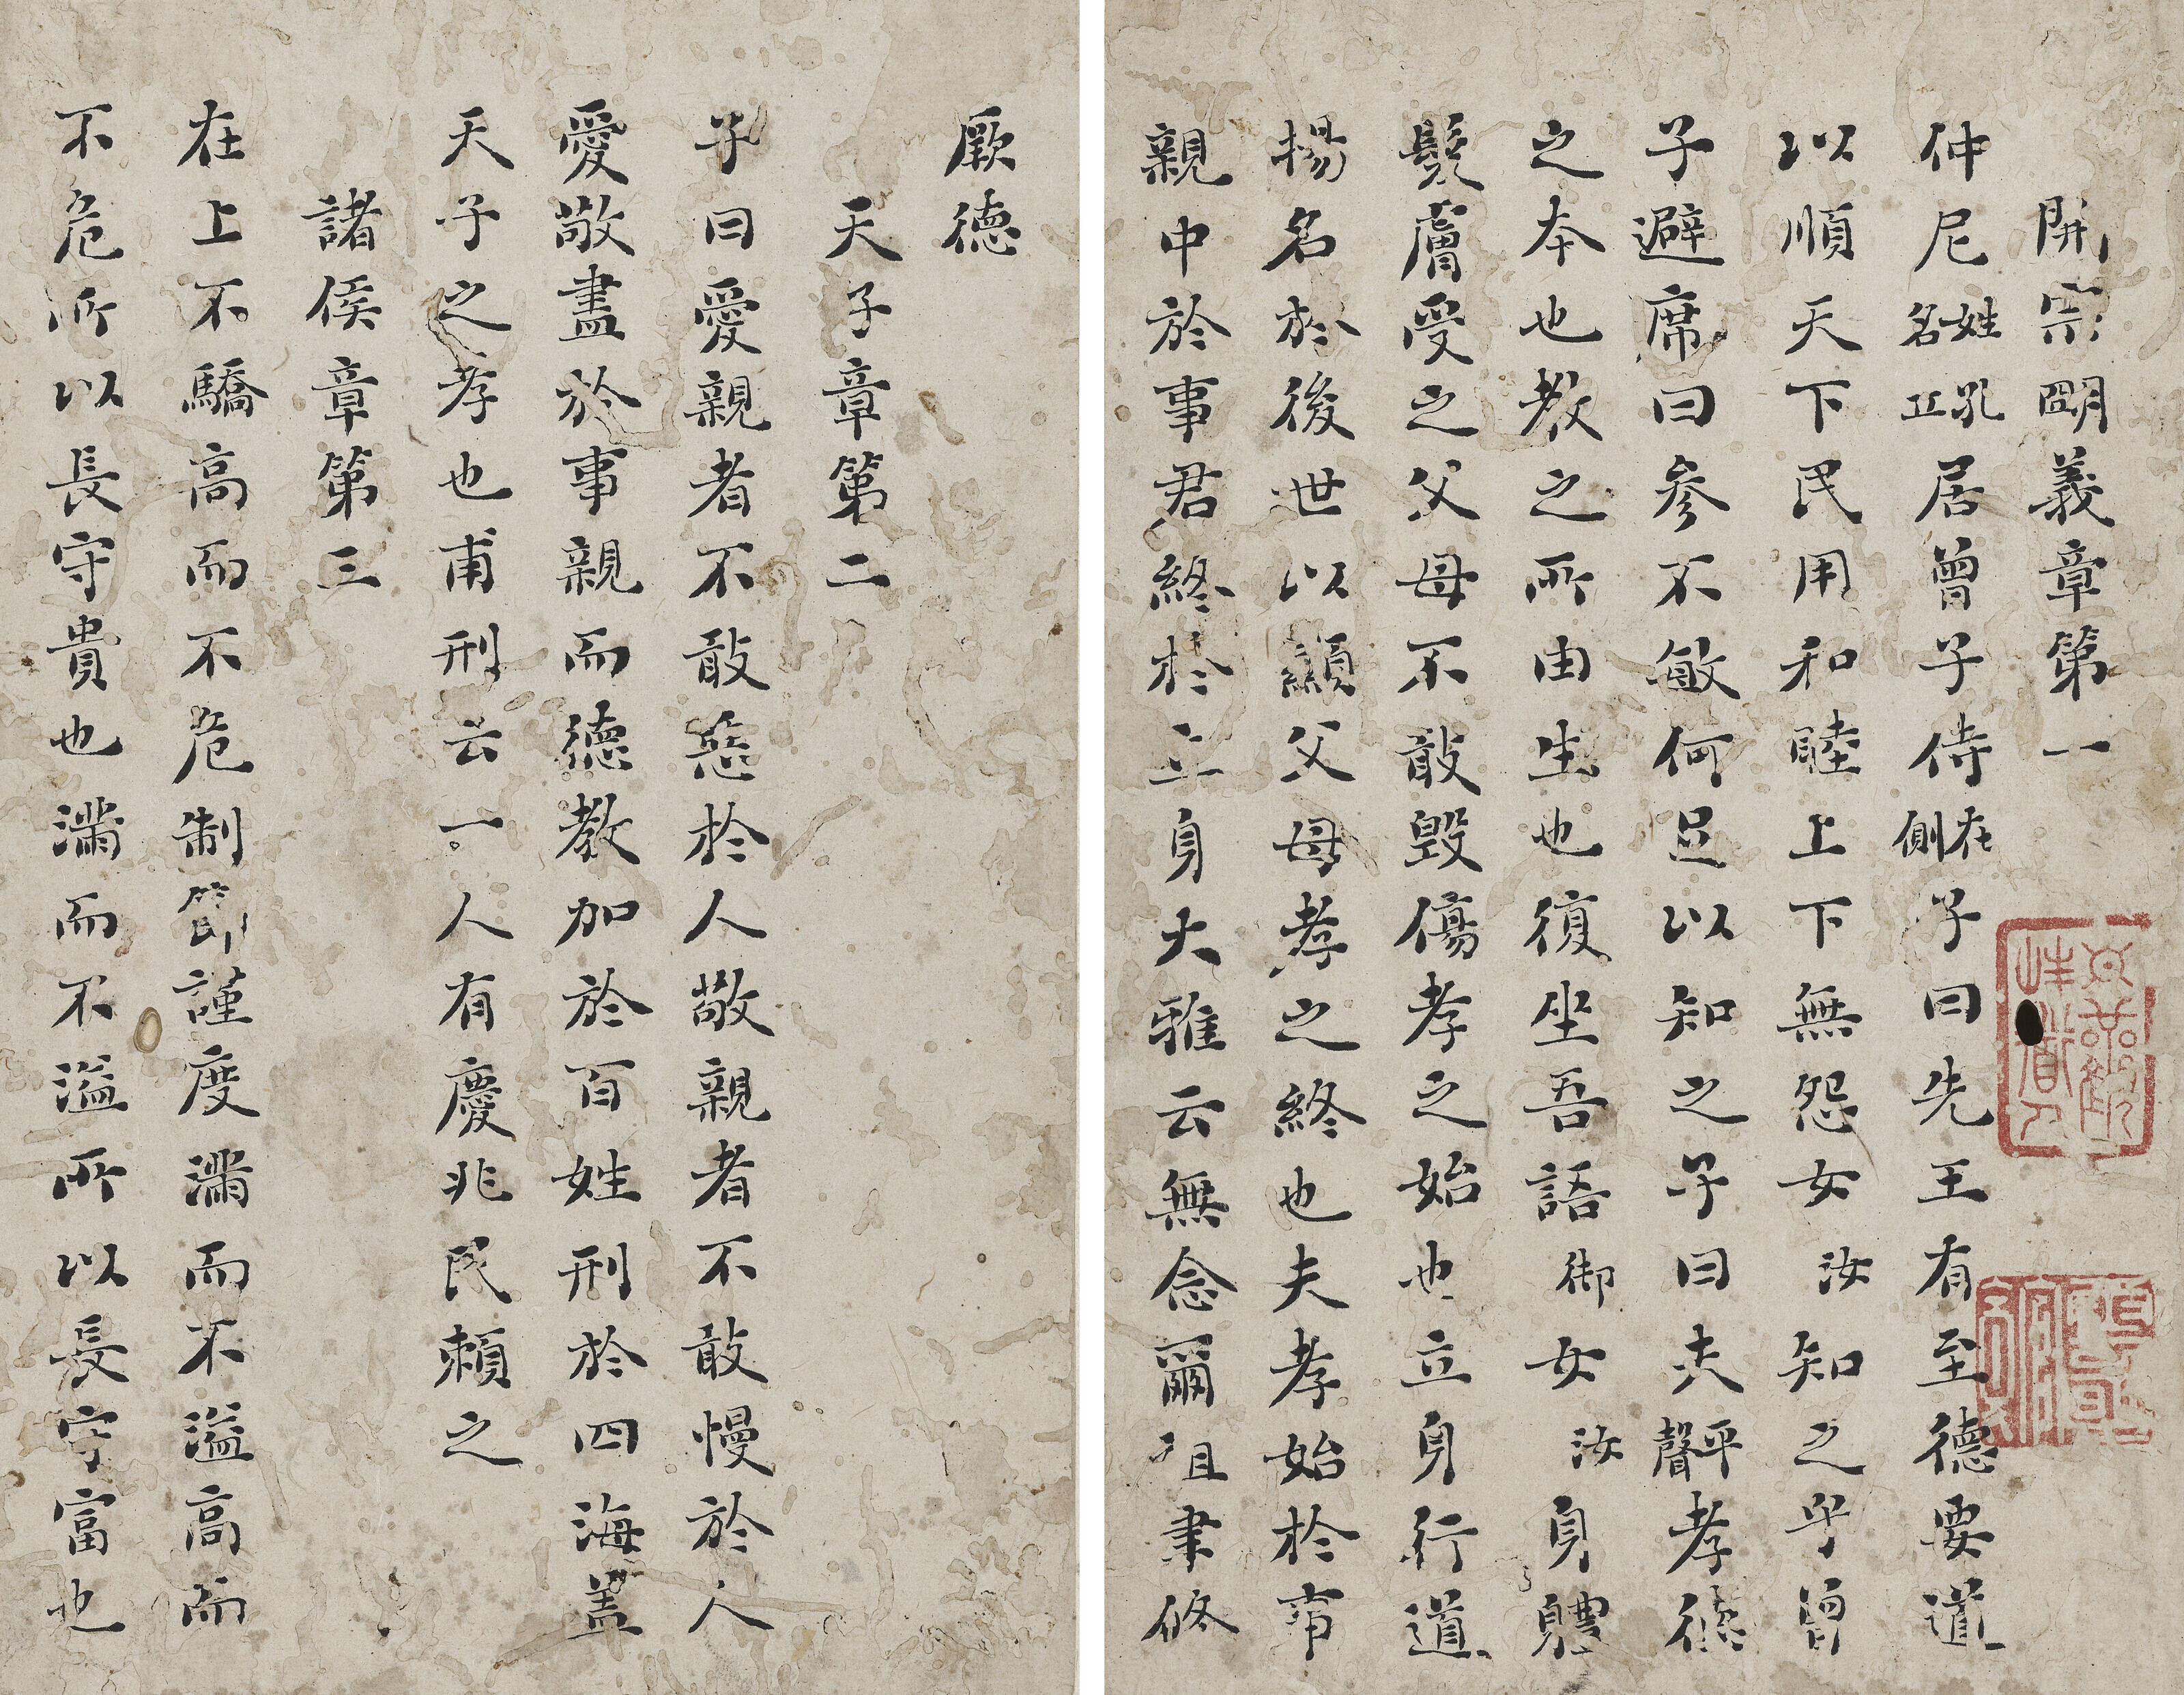 開宗明義章第一
仲尼姓孔名丘居曾子侍在側子曰先王有至德要道
以順天下民用和睦上下無怨女汝知之乎曾
子避席曰參不敏何足以知之子曰夫平聲孝德
之本也教之所由生也復坐吾語御女汝身體
髮膚受之父母不敢毀傷孝之始也立身行道
揚名於後世以顯父母孝之終也夫孝始於事
親中於事君終於立身大雅云無念爾祖聿修
厥德
天子章第二
子曰愛親者不敢惡於人敬親者不敢慢於人
愛敬盡於事親而德教加於百姓刑於四海蓋
天子之孝也甫刑云一人有慶兆民賴之
諸侯章第三
在上不驕高而不危制節謹度滿而不溢高而
不危所以長守貴也滿而不溢所以長守富也